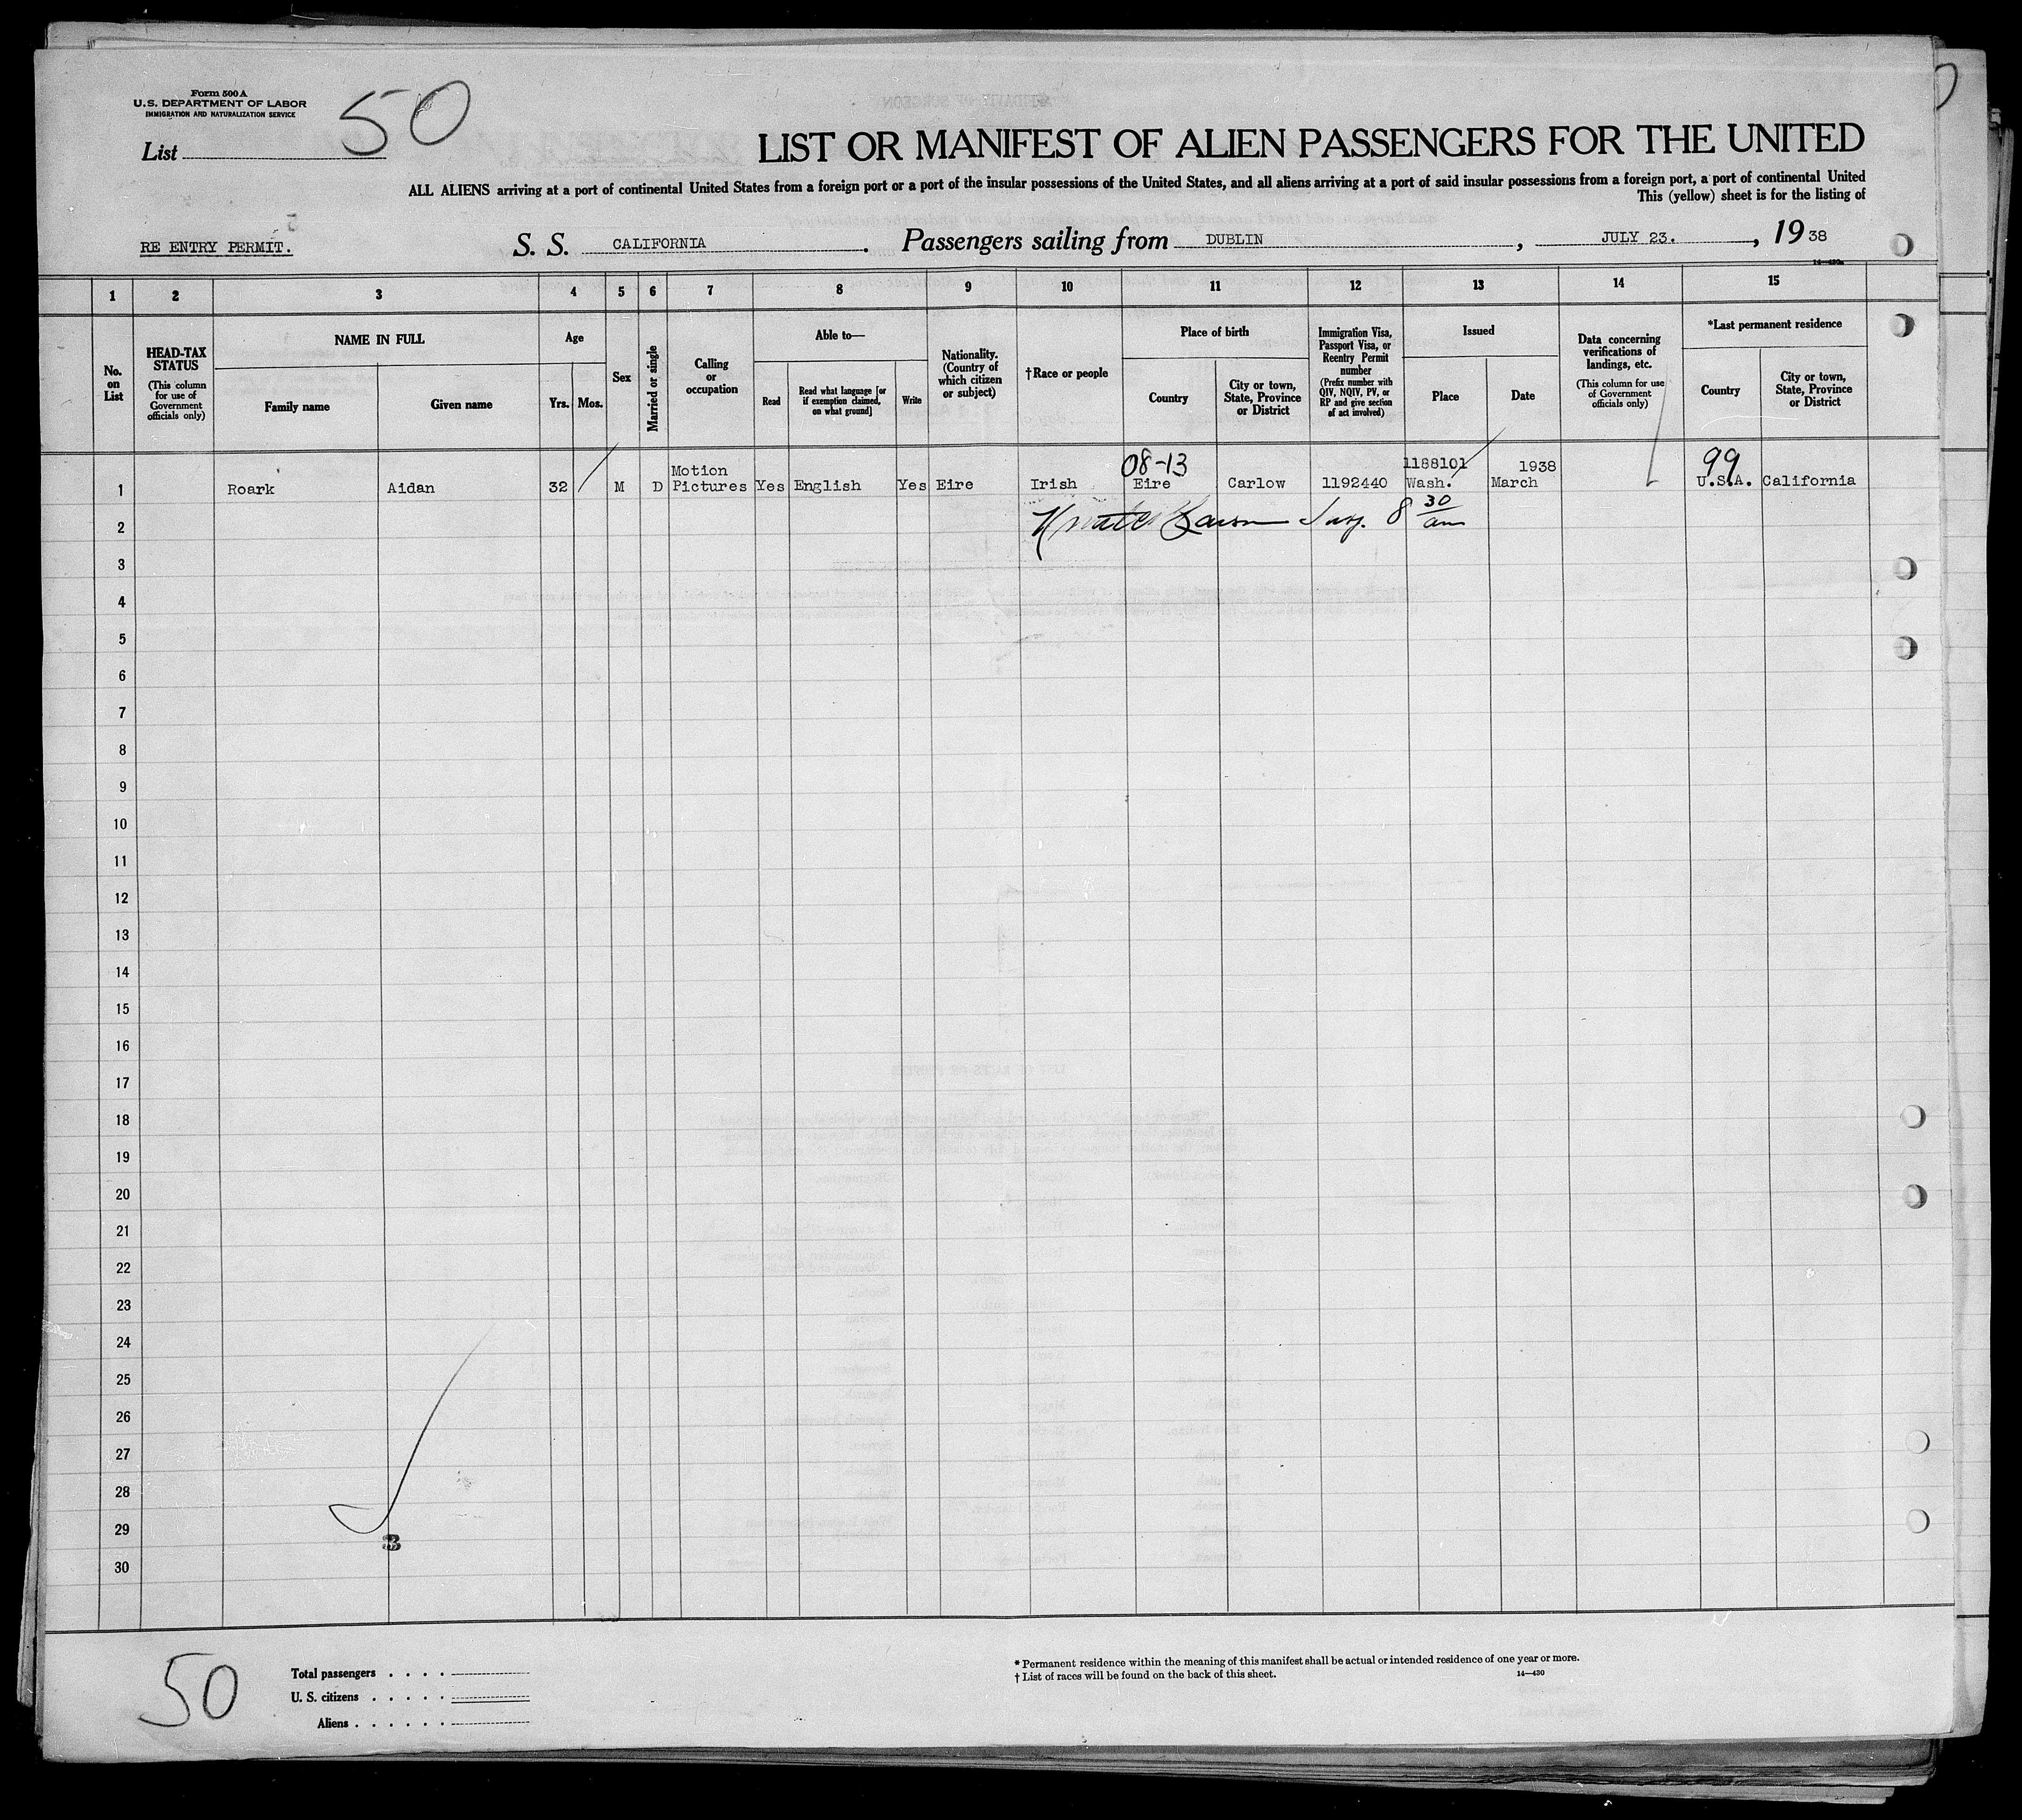 Form 500 A
U.S. DEPARTMENT OF LABOR
IMMIGRATION AND NATURALIZATION SERVICE
List 50
LIST OR MANIFEST OF ALIEN PASSENGERS FOR THE UNITED
ALL ALIENS arriving at a port of continental United States from a foreign port or a port of the insular possessions of the United States, and all aliens arriving at a port of said insular possessions from a foreign port, a port of continental United
This (yellow) sheet is for the listing of
RE ENTRY PERMIT. S. S. CALIFORNIA. Passengers sailing from DUBLIN, JULY 23., 1938
14—430a
1 2 3 4 5 6 7 8 9 10 11 12 13 14 15
No. on List
HEAD-TAX STATUS (This column for use of Government officials only)
NAME IN FULL
Family name
Given name
Age
Yrs. Mos.
Sex
Married or single
Calling or occupation
Able to—
Read
Read what language [or if exemption claimed, on what ground]
Write
Nationality. (Country of which citizen or subject)
†Race or people
Place of birth
Country
City or town, State, Province or District
Immigration Visa, Passport Visa, or Reentry Permit number (Prefix number with QIV, NQIV, PV, or RP and give section of act involved)
Issued
Place
Date
Data concerning verifications of landings, etc. (This column for use of Government officials only)
*Last permanent residence
Country
City or town, State, Province or District
Motion 08-13 1188101 1938 99
1 Roark Aidan 32 M D Pictures Yes English Yes Eire Irish Eire Carlow 1192440 Wash. March U.S.A. California
2 8 30 am
3
4
5
6
7
8
9
10
11
12
13
14
15
16
17
18
19
20
21
22
23
24
25
26
27
28
29
30
50
Total passengers
U. S. citizens
Aliens
* Permanent residence within the meaning of this manifest shall be actual or intended residence of one year or more.
† List of races will be found on the back of this sheet. 14—430